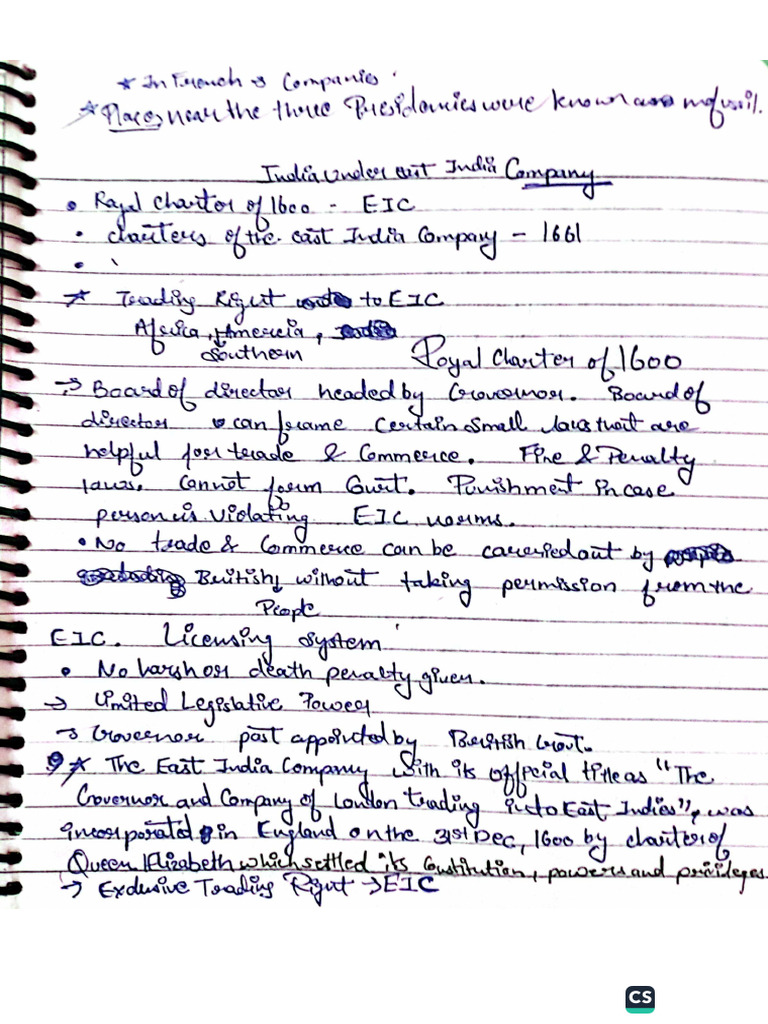 * In French & Companies.
* Places near the three Presidancies were known as mofussil.
India under east India Company
• Royal Charter of 1600 - EIC
• charters of the east India Company - 1661
•
* Trading Right to EIC
Africa, America,
Southern
Royal Charter of 1600
→ Board of director headed by Governor. Board of
director can frame certain small laws that are
helpful for trade & Commerce. Fine & Penalty
laws. Cannot form Court. Punishment in case
person is violating EIC norms.
• No trade & Commerce can be carried out by
British without taking permission from the
People
EIC. Licensing system
• No harsh or death penalty given.
→ Limited Legislative Power
→ Governor post appointed by British Govt.
* The East India Company with its official title as "The
Governor and Company of London trading into East Indies", was
incorporated in England on the 31st Dec, 1600 by charter of
Queen Elizabeth which settled its Constitution, powers and privileges.
→ Exclusive Trading Right → EIC
CS